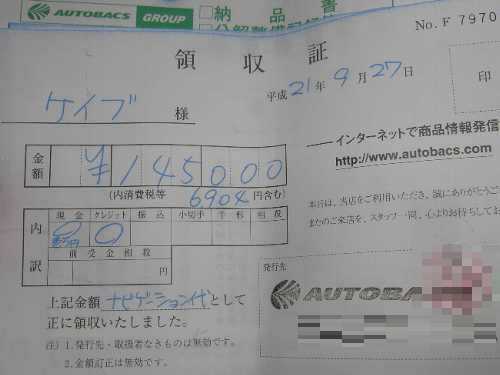 AUTOBACS GROUP 納品書
領収証 No. F 7970
平成 21年 9月 27日
印
ケイブ 様
金額 ¥145000
(内消費税等 6904 円含む)
内訳
現金 クレジット 振込 小切手 手形 相殺
前受金相殺 円
上記金額 ナビゲーション代として
正に領収いたしました。
注) 1.発行先・取扱者なきものは無効です。
2.金額訂正は無効です。
インターネットで商品情報発信
http://www.autobacs.com
本日は、当店をご利用いただき、誠にありがとうご
またのご来店を、スタッフ一同、心よりお待ちしてお
発行先
AUTOBA